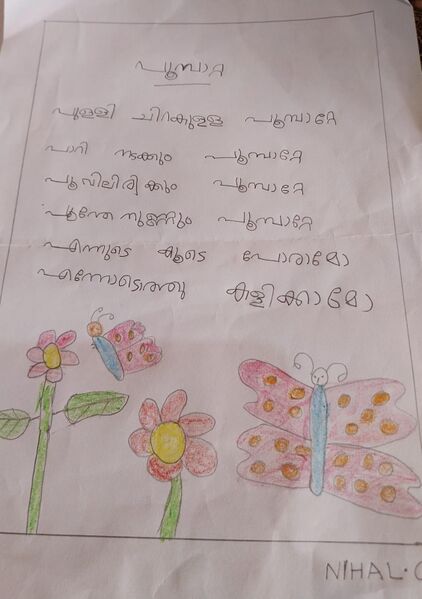 പൂമ്പാറ്റ
പുള്ളി ചിറകുള്ള പൂമ്പാറ്റേ
പാറി നടക്കും പൂമ്പാറ്റേ
പൂവിലിരിക്കും പൂമ്പാറ്റേ
പൂന്തേനുണ്ണും പൂമ്പാറ്റേ
എന്നുടെ കൂടെ പോരാമോ
എന്നോടൊത്തു കളിക്കാമോ
NIHAL.C